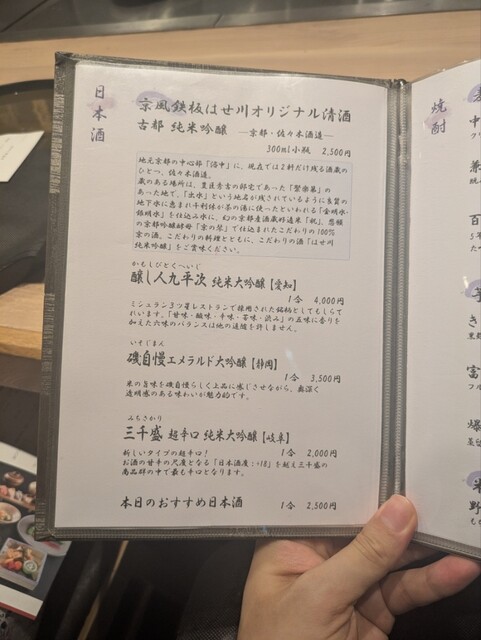 日本酒
京風鉄板はせ川オリジナル清酒
古都 純米吟醸 ―京都・佐々木酒造―
300ml小瓶 2,500円
地元京都の中心部「洛中」に、現在では2軒だけ残る酒蔵の
ひとつ、佐々木酒造。
蔵のある場所は、豊臣秀吉の邸宅であった「聚楽第」の
あった地で、「出水」という地名が残されているように良質の
地下水に恵まれ千利休が茶の湯に使ったといわれる「金明水・
銀明水」を仕込み水に、幻の京都産酒蔵好適米「祝」、
の京都吟醸酵母「京の琴」で仕込まれたこだわりの100%
京の酒。こだわりの料理とともに、こだわりの酒「はせ川
純米吟醸」をご賞味ください。
かもしびとくへいじ
醸し人九平次 純米大吟醸【愛知】
1合 4,000円
ミシュラン3ツ星レストランで採用された銘柄としてもしら
れいます。「甘味・酸味・辛味・苦味・渋み」の五味に香りを
加えた六味のバランスは他の追随を許しません。
いそじまん
磯自慢エメラルド大吟醸【静岡】
1合 3,500円
米の旨味を磯自慢らしく上品に感じさせながら、奥深く
透明感のある味わいが魅力的です。
みちさかり
三千盛 超辛口 純米大吟醸【岐阜】
1合 2,000円
新しいタイプの超辛口!
お酒の甘辛の尺度となる「日本酒度:+18」を超え三千盛の
商品群の中で最も辛口となります。
本日のおすすめ日本酒 1合 2,500円
焼酎